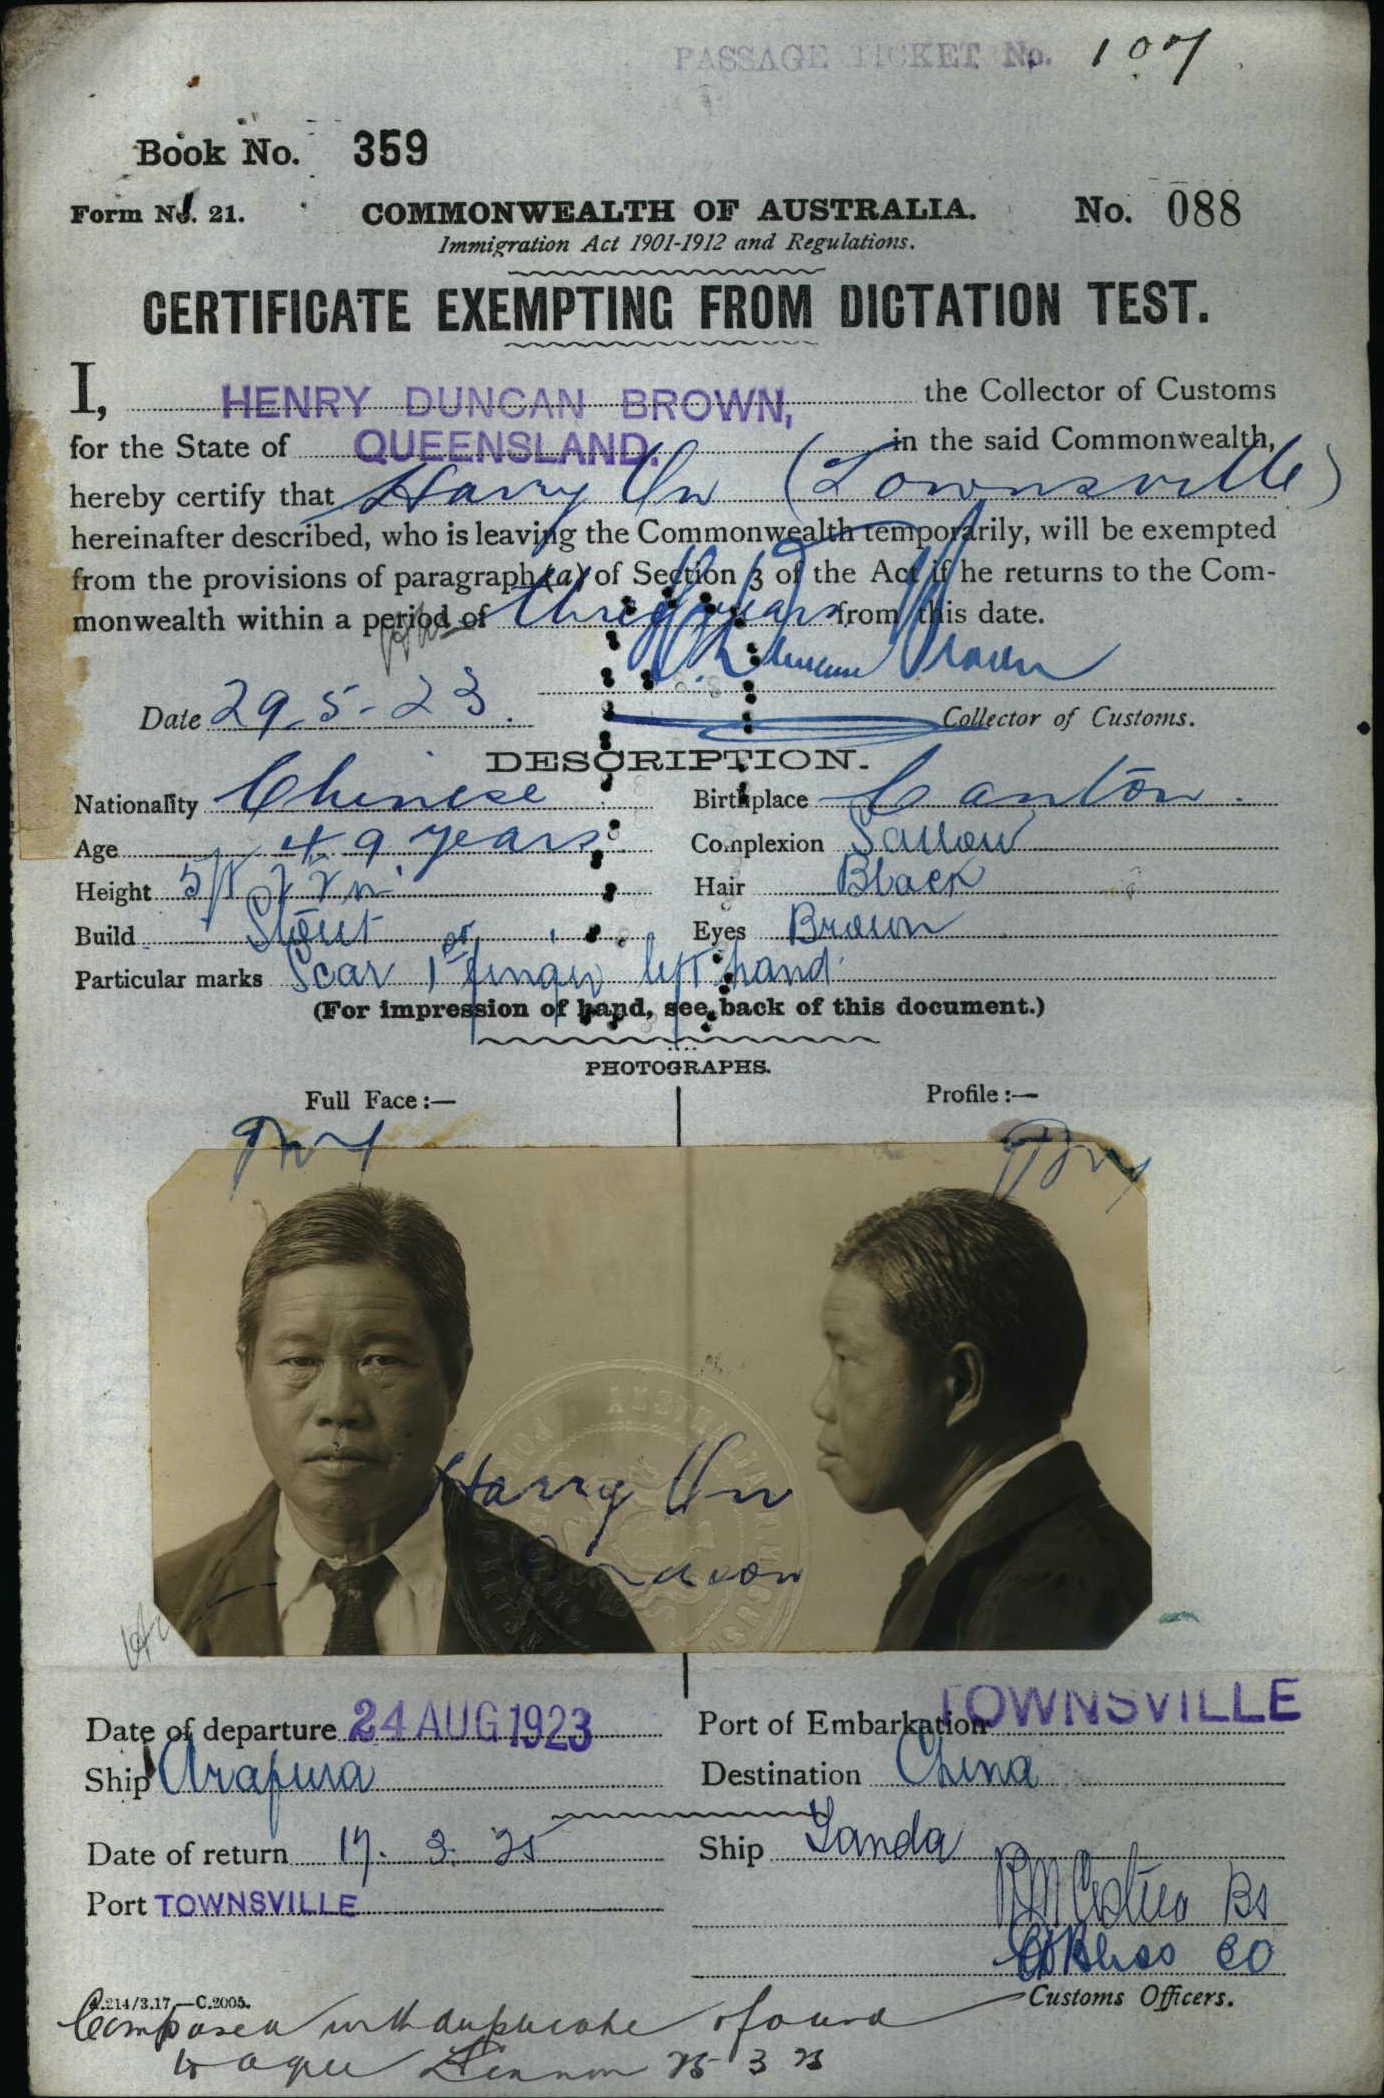 PASSAGE TICKET No. 107
Book No. 359
Form No. 21. COMMONWEALTH OF AUSTRALIA. No. 088
Immigration Act 1901-1912 and Regulations.
CERTIFICATE EXEMPTING FROM DICTATION TEST.
I, HENRY DUNCAN BROWN, the Collector of Customs
for the State of QUEENSLAND. in the said Commonwealth,
hereby certify that Harry On (Townsville)
hereinafter described, who is leaving the Commonwealth temporarily, will be exempted
from the provisions of paragraph (a) of Section 3 of the Act if he returns to the Com-
monwealth within a period of three years from this date.
H. Duncan Brown
Date 29.5-23. Collector of Customs.
DESCRIPTION.
Nationality Chinese Birthplace Canton.
Age 49 years Complexion Sallow
Height 5ft 7½in Hair Black
Build Stout Eyes Brown
Particular marks Scar 1st finger left hand
(For impression of hand, see back of this document.)
PHOTOGRAPHS.
Full Face:— Profile:—
Harry On
Date of departure 24 AUG 1923 Port of Embarkation TOWNSVILLE
Ship Arafura Destination China
Date of return 17. 3. 25 Ship Tanda
Port TOWNSVILLE
Customs Officers.
C.2005.
Compared with duplicate & found
to agree 25 3 25